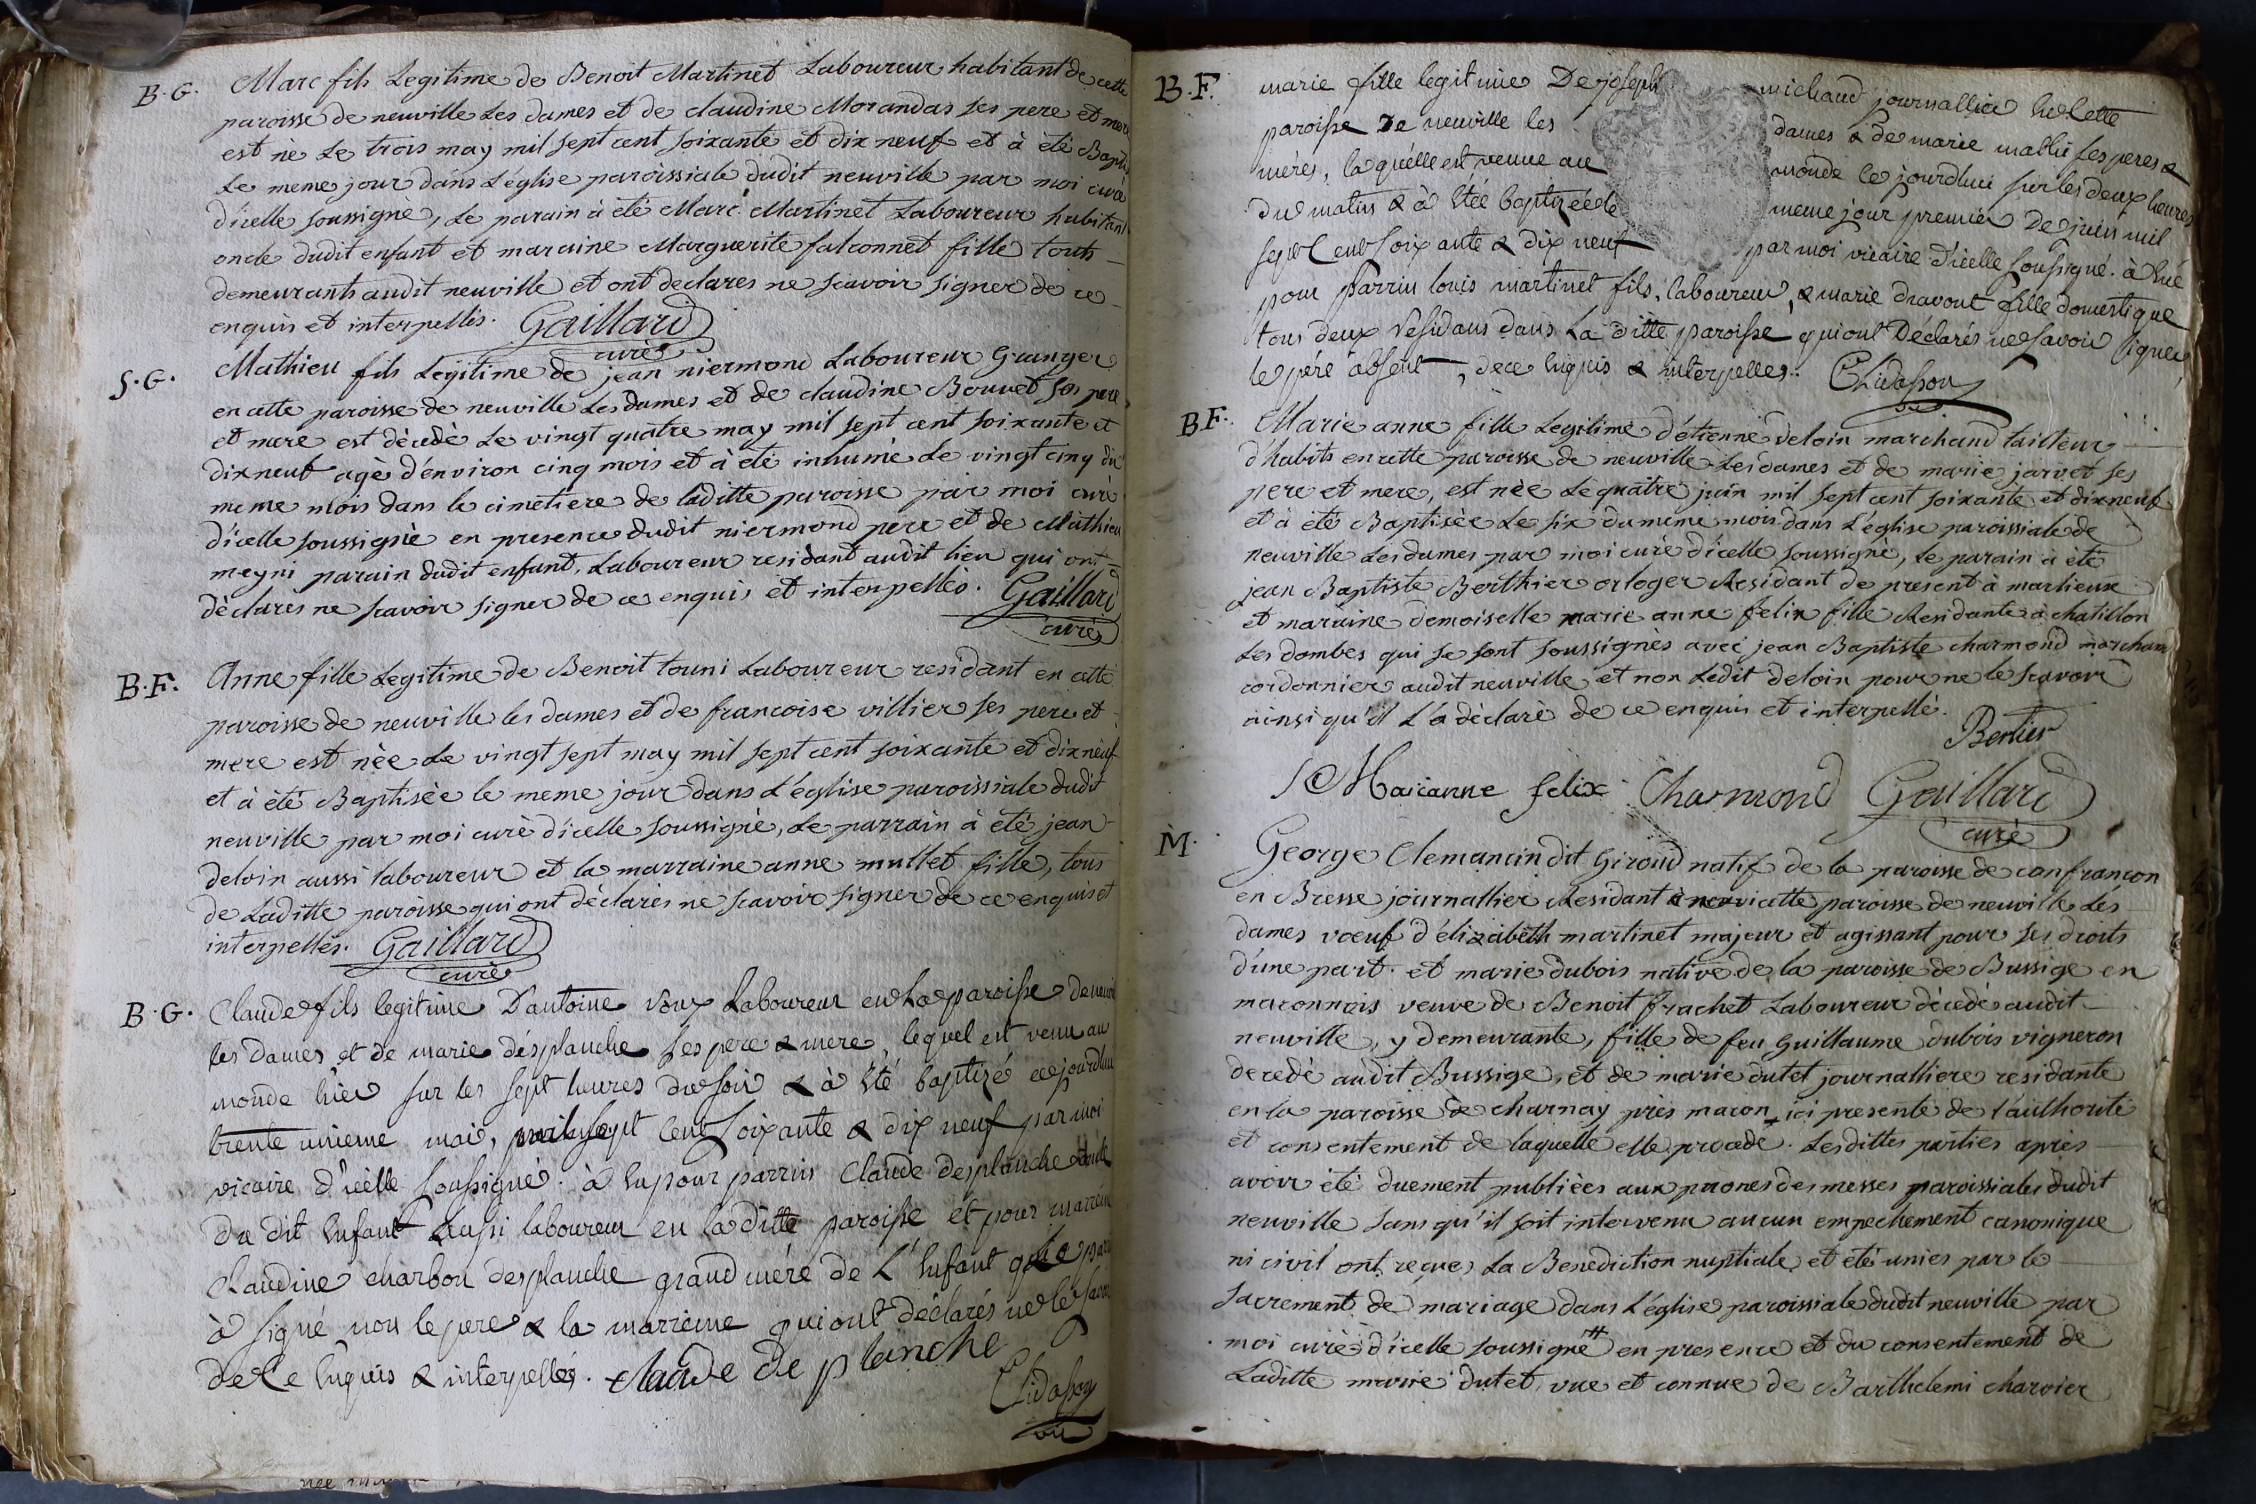 B.G. Marc fils Legitime de Benoit Martinet Laboureur habitant de cette
paroisse de neuville Les dames et de claudine Morandas ses pere et mere
est nè Le trois may mil sept cent soixante et dix neuf et à èté Baptisè
Le meme jour dans L'èglise paroissiale dudit neuville par moi curè
d'icelle soussignè, Le parain à èté Marc Martinet Laboureur habitant
oncle dudit enfant et maraine Marguerite falconnet fille touts
demeurants audit neuville et ont declares ne scavoir signer de ce
enquis et interpellès. Gaillard
curè
S.G. Mathieu fils Legitime de jean niermond Laboureur Granger
en cette paroisse de neuville Les dames et de claudine Bouvet ses pere
et mere est dècedè Le vingt quatre may mil sept cent soixante et
dix neuf agè d'environ cinq mois et à èté inhumè Le vingt cinq du
meme mois dans le cimetiere de laditte paroisse par moi curè
d'icelle soussignè en presence dudit niermond pere et de Mathieu
meyni parain dudit enfant, Laboureur residant audit lieu qui ont
dèclarès ne scavoir signer de ce enquis et interpellès. Gaillard
curè
B.F. Anne fille Legitime de Benoit touni Laboureur residant en cette
paroisse de neuville les dames et de francoise villier ses pere et
mere est nèe Le vingt sept may mil sept cent soixante et dix neuf
et à èté Baptisèe le meme jour dans L'èglise paroissiale dudit
neuville par moi curè d'icelle soussignè, Le parrain à èté jean
deloin aussi laboureur et la marraine anne mullet fille, tous
de Laditte paroisse qui ont dèclarès ne scavoir signer de ce enquis et
interpellès. Gaillard
curè
B.G. Claude fils legitime D'antoine Voux Laboureur en La paroisse de neuville
les Dames et de marie desplanche ses pere & mere, lequel est venu au
monde hier sur les sept heures du soir & à été baptizé cejourdhui
trente unieme mai, mil sept cent soixante & dix neuf par moi
vicaire d'icelle soussigné. à eu pour parrin Claude desplanche oncle
du dit Enfant aussi laboureur en la ditte paroisse et pour marreine
Claudine charbon desplanche grand mére de L'Enfant
à signé non le pere & la marreine qui ont déclarés ne le savoir
de ce Enquis & interpellés. claude de planche
Chidasson
vic
B.F. marie fille legitime De joseph michaud journallier En Cette
paroisse De neuville les dames & de marie mathi ses peres &
mères, laquélle est venue au monde ce jourdhui sur les deux heures
du matin & à été baptizée le meme jour premier De juin mil
sept Cent Soixante & dix neuf par moi vicaire d'icelle soussigné. à Eué
pour parrin louis martinet fils, laboureur, & marie dravout fille domestique
tous deux résidans dans La ditte paroisse qui ont Déclarés ne savoir signer
le pére absent, de ce Enquis & interpelles. Chidasson
vic
B.F. Marie anne fille Legitime d'etienne deloin marchand tailleur
d'habits en cette paroisse de neuville Les dames et de marie jarvet ses
pere et mere, est nèe Le quatre juin mil sept cent soixante et dix neuf
et à èté Baptisèe Le six du meme mois dans L'èglise paroissiale de
neuville Les dames par moi curè d'icelle soussignè, Le parain à èté
jean Baptiste Berthier orloger Residant de present à marlieux
et maraine demoiselle marie anne felix fille Residante à chatillon
Les dombes qui se sont soussignès avec jean Baptiste charmond marchand
cordonnier audit neuville et non Ledit deloin pour ne le scavoir
ainsi qu'il L'a dèclarè de ce enquis et interpellè.
Bertier
Marianne felix Charmond Gaillard
curè
M. George Clemancin dit Giroud natif de la paroisse de confrancon
en Bresse journallier Residant cette paroisse de neuville Les
dames voeuf d'élizabeth martinet majeur et agissant pour ses droits
d'une part. et marie dubois native de la paroisse de Bussige en
maconnois veuve de Benoit frachet Laboureur dècedè audit
neuville, y demeurante, fille de feu Guillaume dubois vigneron
decedè audit Bussige, et de marie dutet journalliere residante
en la paroisse de charnay près macon, ici presente de l'authoritè
et consentement de laquelle elle procede. Lesdittes parties après
avoir èté duement publièes aux prones des messes paroissiales dudit
neuville sans qu'il soit intervenu aucun empechement canonique
ni civil ont reçues La Benediction nuptiale et èté unies par le
sacrement de mariage dans L'èglise paroissiale dudit neuville par
moi curè d'icelle soussignè # en presence et du consentement de
Laditte marie dutet, vue et connue de Barthelemi charvier